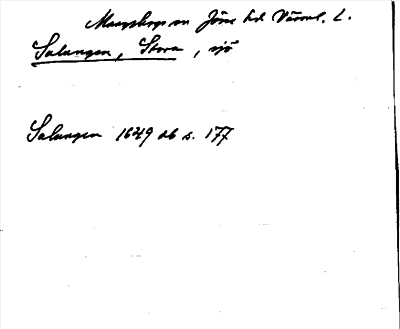 Mangskogs sn Jösse hd. Värml. L.
Salungen, Stora, sjö
Salungen 1649 ob s. 177